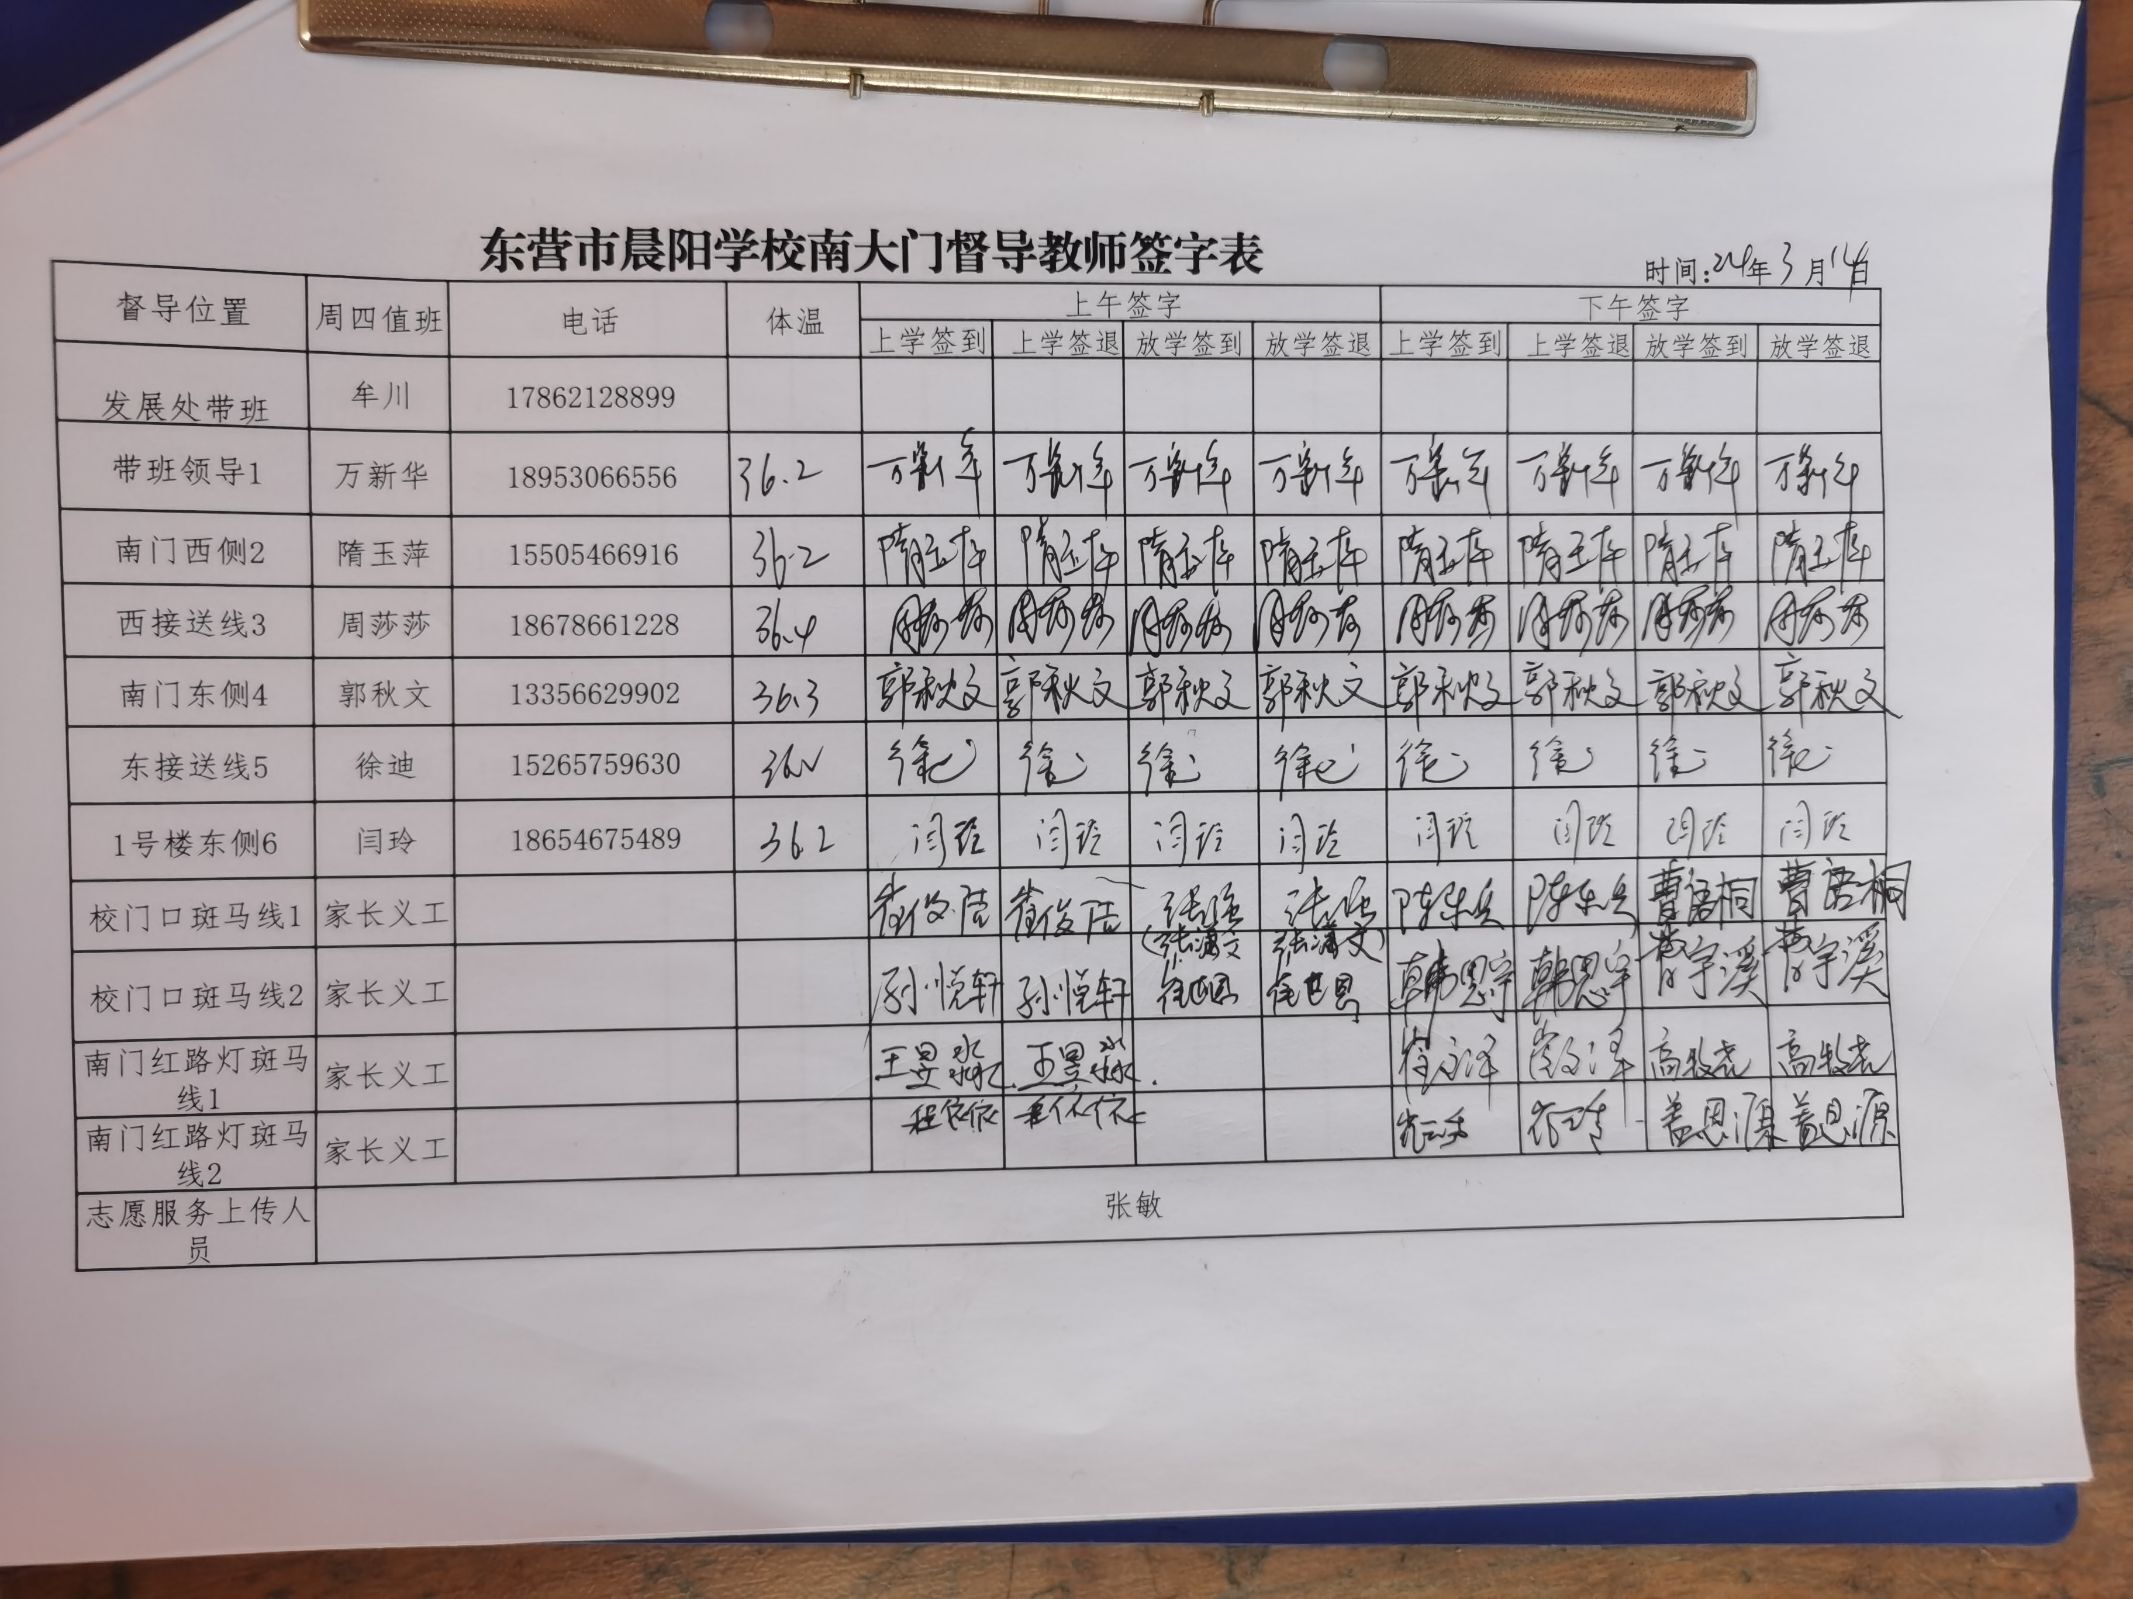 东营市晨阳学校南大门督导教师签字表
时间:24年3月14日
督导位置 周四值班 电话 体温 上午签字 下午签字
上学签到 上学签退 放学签到 放学签退 上学签到 上学签退 放学签到 放学签退
发展处带班 牟川 17862128899
带班领导1 万新华 18953066556 36.2 万新华 万新华 万新华 万新华 万新华 万新华 万新华 万新华
南门西侧2 隋玉萍 15505466916 36.2 隋玉萍 隋玉萍 隋玉萍 隋玉萍 隋玉萍 隋玉萍 隋玉萍 隋玉萍
西接送线3 周莎莎 18678661228 36.4 周莎莎 周莎莎 周莎莎 周莎莎 周莎莎 周莎莎 周莎莎 周莎莎
南门东侧4 郭秋文 13356629902 36.3 郭秋文 郭秋文 郭秋文 郭秋文 郭秋文 郭秋文 郭秋文 郭秋文
东接送线5 徐迪 15265759630 徐迪 徐迪 徐迪 徐迪 徐迪 徐迪 徐迪 徐迪
1号楼东侧6 闫玲 18654675489 36.2 闫玲 闫玲 闫玲 闫玲 闫玲 闫玲 闫玲 闫玲
校门口斑马线1 家长义工 陈东兵 陈东兵 曹语桐 曹语桐
(张潇文 张潇文)
校门口斑马线2 家长义工 孙悦轩 孙悦轩 韩恩宇 韩恩宇 黄宇溪 黄宇溪
南门红路灯斑马 家长义工 王昱淼 王昱淼 高牧尧 高牧尧
线1
南门红路灯斑马 家长义工 程依依 程依依 盖恩源 盖恩源
线2
志愿服务上传人 张敏
员